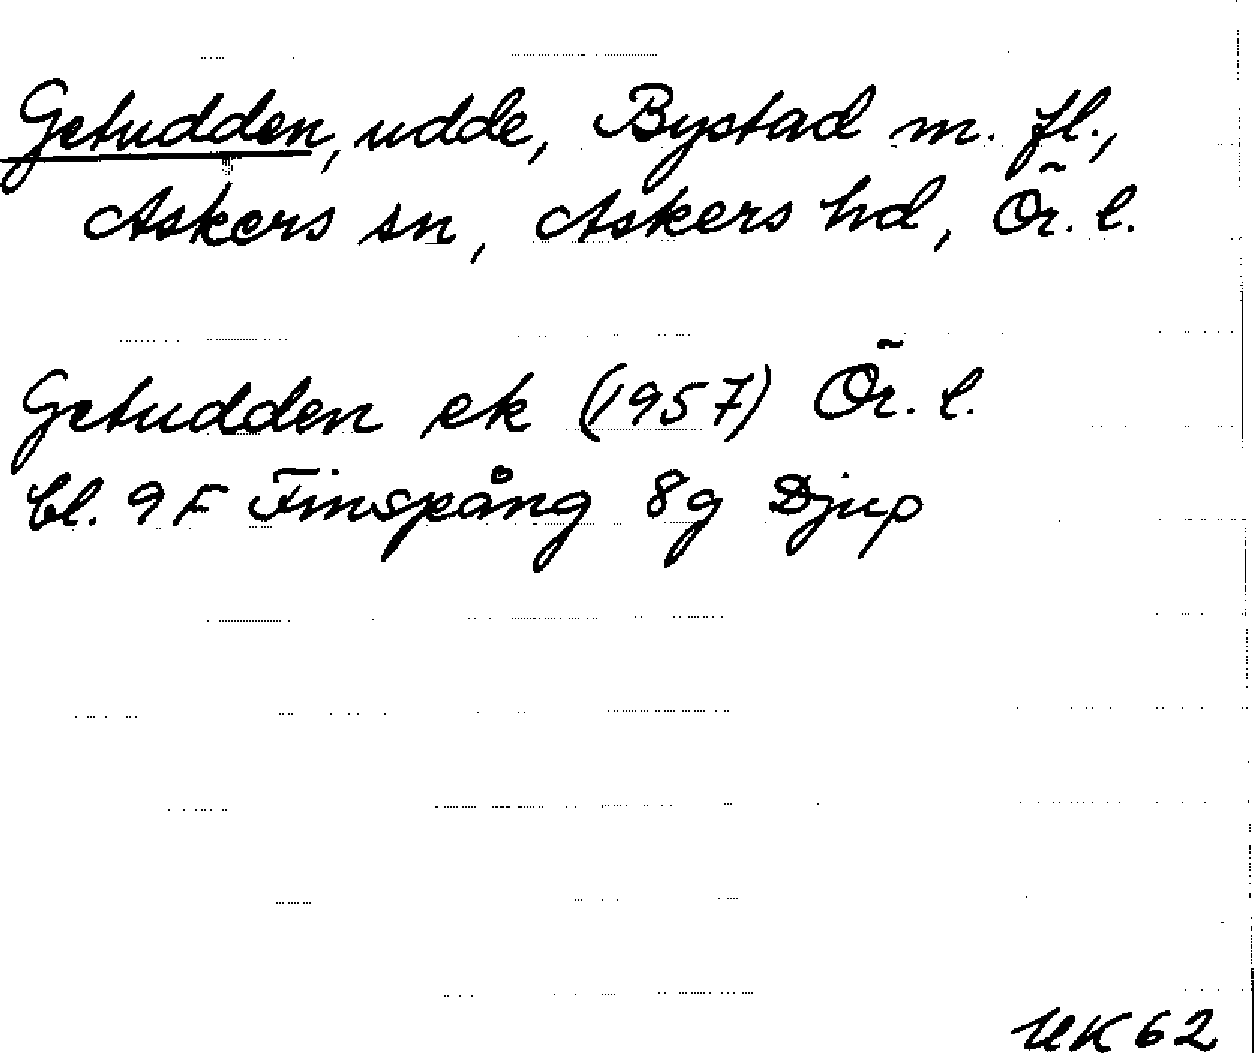 Getudden, udde, Bystad m. fl.,
Askers sn, Askers hd, Ör. l.
Getudden ek (1957) Ör. l.
bl. 9 F Finspång 8g Djup
UK 62